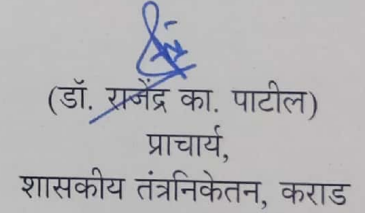 (डॉ. राजेंद्र का. पाटील)
प्राचार्य,
शासकीय तंत्रनिकेतन, कराड